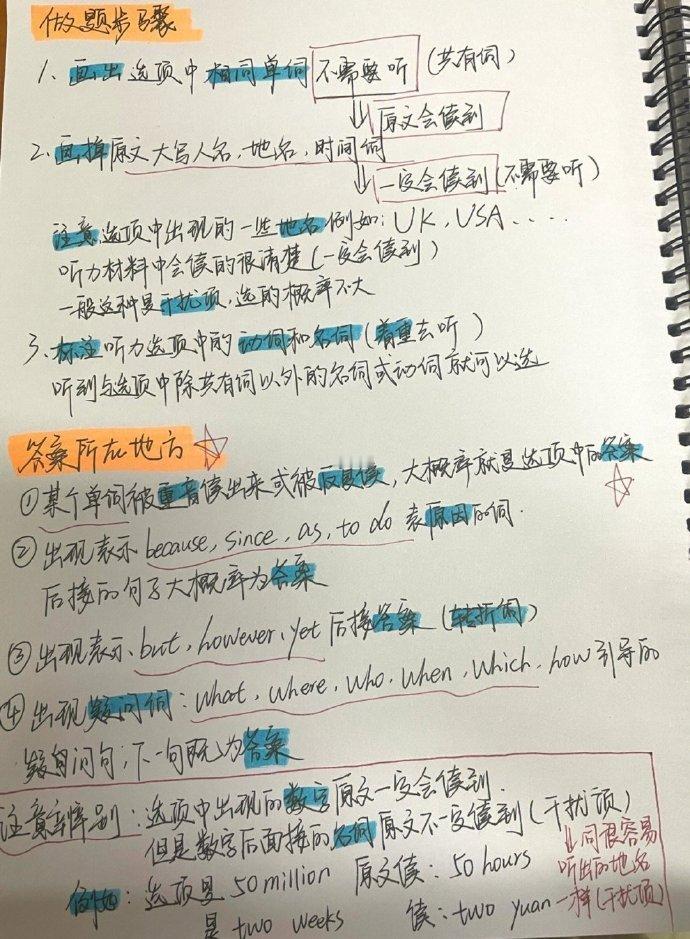 做题步骤
1、画出选项中相同单词 不需要听 (共有词)
原文会读到
2、画掉原文大写人名,地名,时间词
一定会读到 (不需要听)
注意,选项中出现的一些地名,例如: UK, USA.....
听力材料中会读的很清楚(一定会读到)
一般这种是干扰项,选的概率不大
3、标注听力选项中的动词和名词(着重去听)
听到与选项中除共有词以外的名词或动词就可以选
答案所在地方
①某个单词被重音读出来或被反复读,大概率就是选项中的答案
②出现表示 because, since, as, to do 表原因的词.
后接的句子大概率为答案
③出现表示、but, however, yet 后接答案 (转折词)
④出现疑问词: what, where, who, when, which, how 引导的
疑问句,下一句既为答案
注意辨别: 选项中出现的数字原文一定会读到.
但是数字后面接的名词原文不一定读到(干扰项)
同很容易
听出的地名
一样(干扰项)
例如: 选项是 50 million 原文读: 50 hours
是 two weeks 读: two yuan